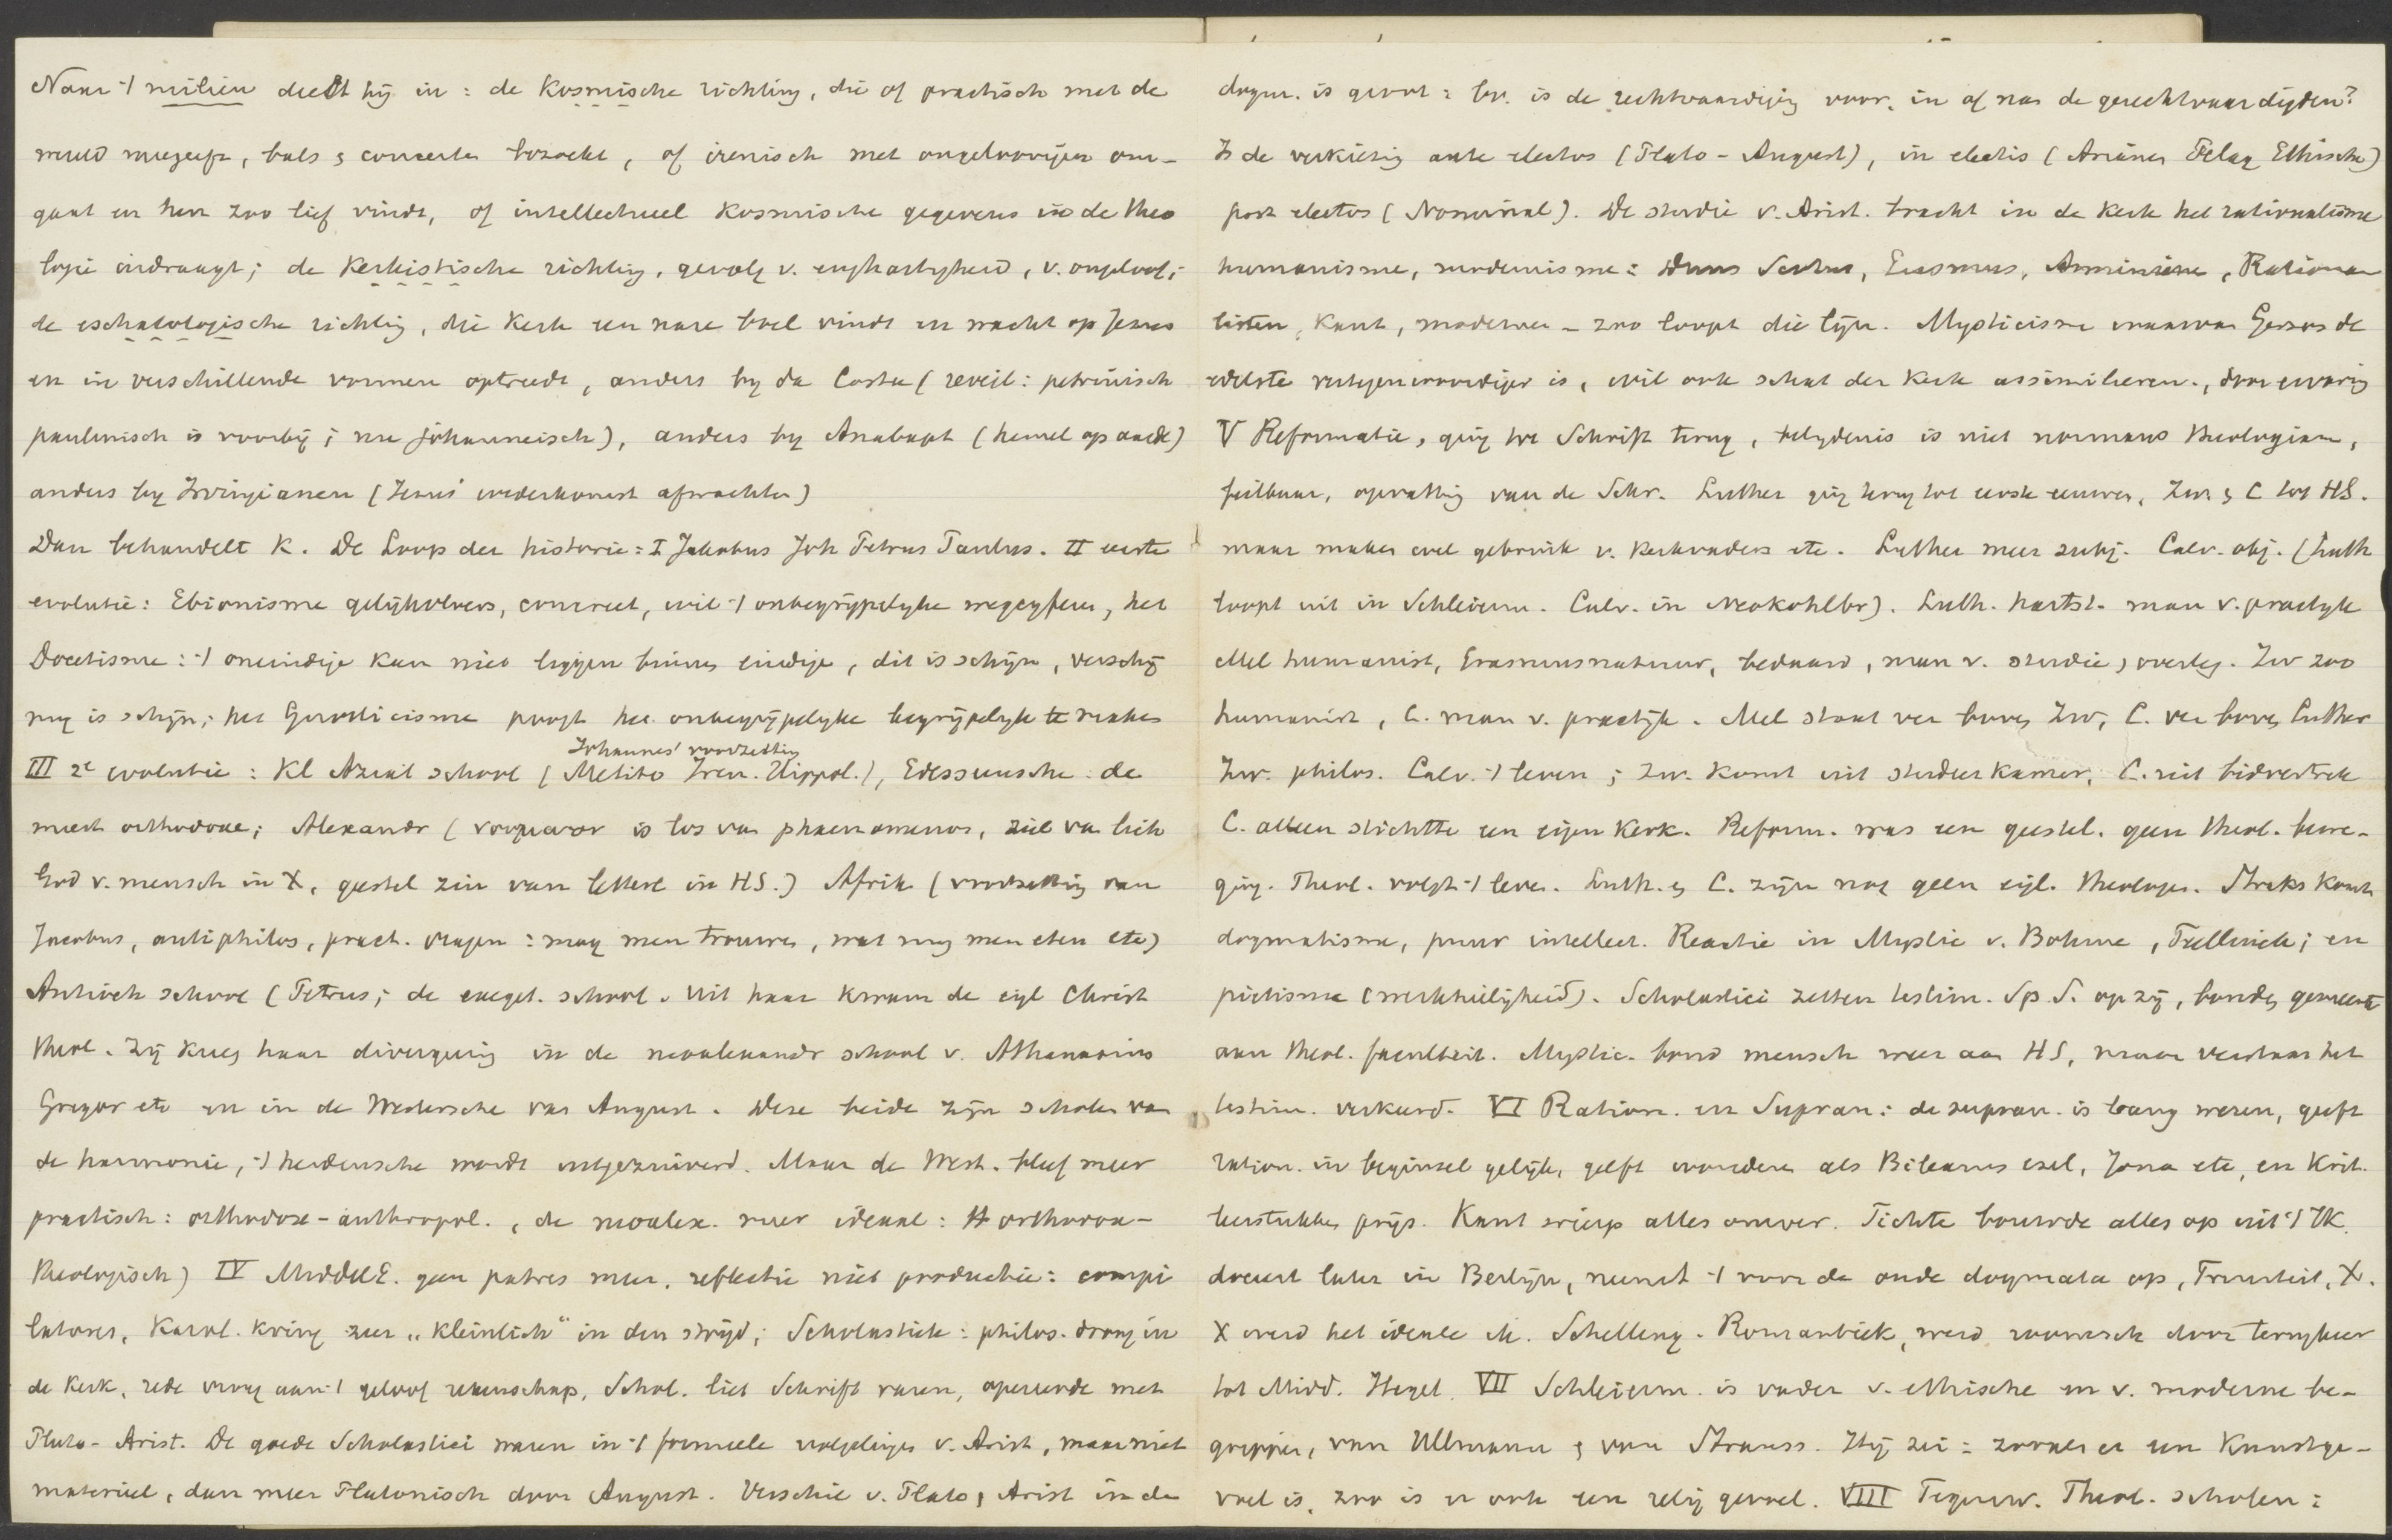 Naar 't milieu deelt hij in: de Kosmische richting, die of practisch met de
wereld meegeeft, bals & concerten bezoekt, of irenisch met ongeloovigen om-
gaat en hen zoo lief vindt, of intellectueel Kosmische gegevens in de theo
logie indraagt; de Kerkistische richting, gevolg v. enghartigheid, v. ongeloof;
de eschatologische richting, die Kerk een nare boel vindt en wacht op Jezus
en in verschillende vormen optreedt, anders bij da Costa (reveil: petrinisch
paulinisch is voorbij; nu johanneisch), anders bij Anabapt (hemel op aarde)
anders bij Irvingianen (Jezus' wederkomst afwachten)
Dan behandelt K. De Loop der historie: I Jakobus Joh Petrus Paulus. II eerste
evolutie: Ebionisme gelijkvloers, concreet, wil 't onbegrijpelijke wegcyferen, het
Docetisme: 't oneindige kan niet liggen binnen eindige, dit is schijn, verschij
ning is schijn; het Gnosticisme poogt het onbegrijpelijke begrijpelijk te maken
Johannes' voortzetting
III 2e evolutie: Kl Aziat school (Melito Iren. Hippol.), Edessensche: de
meest orthodoxe; Alexandr ( is los van phaenomenon, ziel van lich
God v. mensch in X, geestel zin van letterl in HS.) Afrik (voortzetting van
Jacobus, antiphilos, pract. vragen: mag men trouwen, wat mag men eten etc)
Antioch school (Petrus; de exeget. school. Uit haar kwam de eigl Christ
theol. Zij kreeg haar divergering in de neoalexandr school v. Athanasius
Gregor etc en in de Westersche van August. Deze beide zijn scholen van
de harmonie, 't heidensche wordt uitgezuiverd. Maar de West. bleef meer
practisch: orthodox-anthropol., de neoalex. meer ideaal: orthodox-
theologisch) IV MiddelE. geen patres meer, reflectie niet productie: compi
latores, Karol. kring zeer „kleinlich" in den strijd; Scholastiek: philos. drong in
de Kerk, rede vroeg aan 't geloof rekenschap, Schol. liet Schrift varen, opereerde met
Plato-Arist. De goede Scholastici waren in 't formeele volgelingen v. Arist, maar niet
materieel, dan meer Platonisch door August. Verschil v. Plato & Arist in de
dogm. is groot: bv. is de rechtvaardiging voor, in of na de gerechtvaardigden?
Is de verkiezing ante electos (Plato-August), in electis (Arianen Pelag Ethische)
post electos (Nominal). De studie v. Arist. bracht in de Kerk het rationalisme
humanisme, modernisme: Duns Scotus, Erasmus, Arminianen, Rationa
listen, Kant, modernen - zoo loopt die lijn. Mysticisme waarvan Gerson de
edelste vertegenwoordiger is, wil ook schat der Kerk assimileeren, door ervaring
V Reformatie, ging tot Schrift terug, belydenis is niet normans theologiam,
feilbaar, opvatting van de Schr. Luther ging terug tot eerste eeuwen, Zw. & C tot HS.
maar maken wel gebruik v. Kerkvaders etc. Luther meer subj. Calv. obj. (Luth
loopt uit in Schleierm. Calv. in Neokohlbr). Luth. hartst. man v. practyk
Mel humanist, Erasmusnatuur, bedaard, man v. studie & overleg. Zw zoo
humanist, C. man v. practijk. Mel staat ver boven Zw, C. ver boven Luther
Zw. philos. Calv. 't leven; Zw. komt uit studeerkamer, C. uit bidvertrek
C. alleen stichtte een eigen Kerk. Reform. was een geestel. geen theol. bewe-
ging. Theol. volgt 't leven. Luth. & C. zijn nog geen eigl. theologen. Straks komt
dogmatisme, puur intellect. Reactie in Mystic v. Bohme, Tellinck; en
pietisme (werkheiligheid). Scholastici zetten testim. Sp. S. op zij, bonden gemeente
aan theol. faculteit. Mystic. bond mensch weer aan HS, maar verstaan het
testim. verkeerd. VI Ration. en Supran: de supran. is bang wezen, geeft
ration. in beginsel gelijk, geeft wonderen als Bileams ezel, Jona etc, en Krit.
leerstukken prijs. Kant wierp alles omver. Fichte bouwde alles op uit 't IK.
doceert later in Berlijn, neemt 't voor de oude dogmata op, Triniteit, X.
X werd het ideale ik. Schelling. Romantiek, werd roomsch door terugkeer
tot Midd. Hegel. VII Schleierm. is vader v. ethische en v. moderne be-
grippen, van Ullmann & van Strauss. Hij zei: zooals er een Kunstge-
voel is, zoo is er ook een relig gevoel. VIII Tegenw. Theol. scholen: